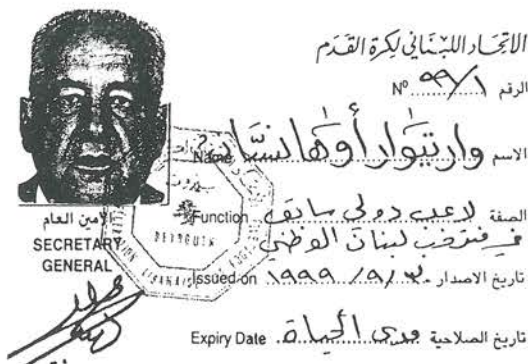 الاتحاد اللبناني لكرة القدم
الرقم ٩٩/١ Nº
الاسم Name وارتيوار أوهانسيان
الصفة Function لاعب دولي سابق
في منتخب لبنان الوطني
تاريخ الاصدار ١٩٩٩/٩/٣ Issued on
تاريخ الصلاحية مدى الحياة Expiry Date
الامين العام
SECRETARY
GENERAL
BEYROUTH